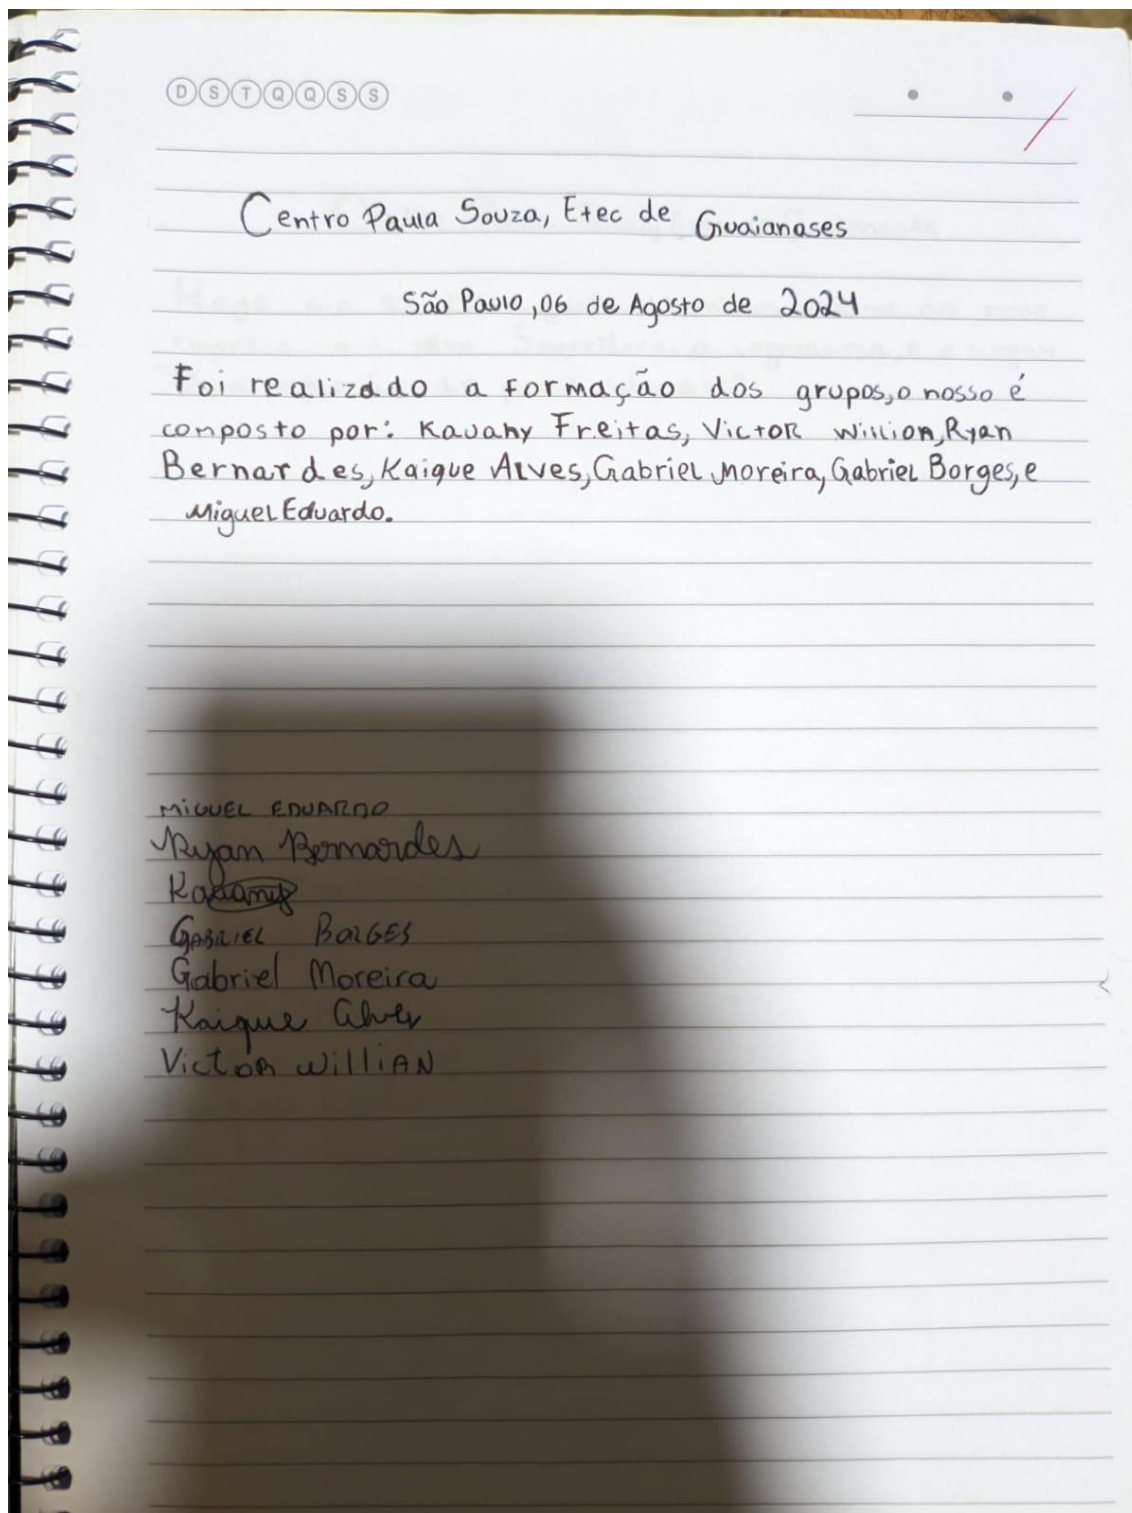 DSTQQSS
Centro Paula Souza, Etec de Guaianases
São Paulo, 06 de Agosto de 2024
Foi realizado a formação dos grupos, o nosso é
composto por: Kauany Freitas, Victor Willian, Ryan
Bernardes, Kaique Alves, Gabriel Moreira, Gabriel Borges, e
Miguel Eduardo.
MIGUEL EDUARDO
Ryan Bernardes
Kauany
GABRIEL BORGES
Gabriel Moreira
Kaique Alves
Victor Willian